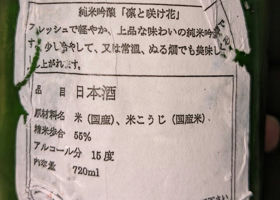 純米吟醸「凛と咲け花」
フレッシュで軽やか、上品な味わいの純米吟
少し冷やして、又は常温、ぬる燗でも美味し
上がれます。
品目 日本酒
原材料名 米(国産)、米こうじ(国産米)
精米歩合 55%
アルコール分 15度
内容量 720ml